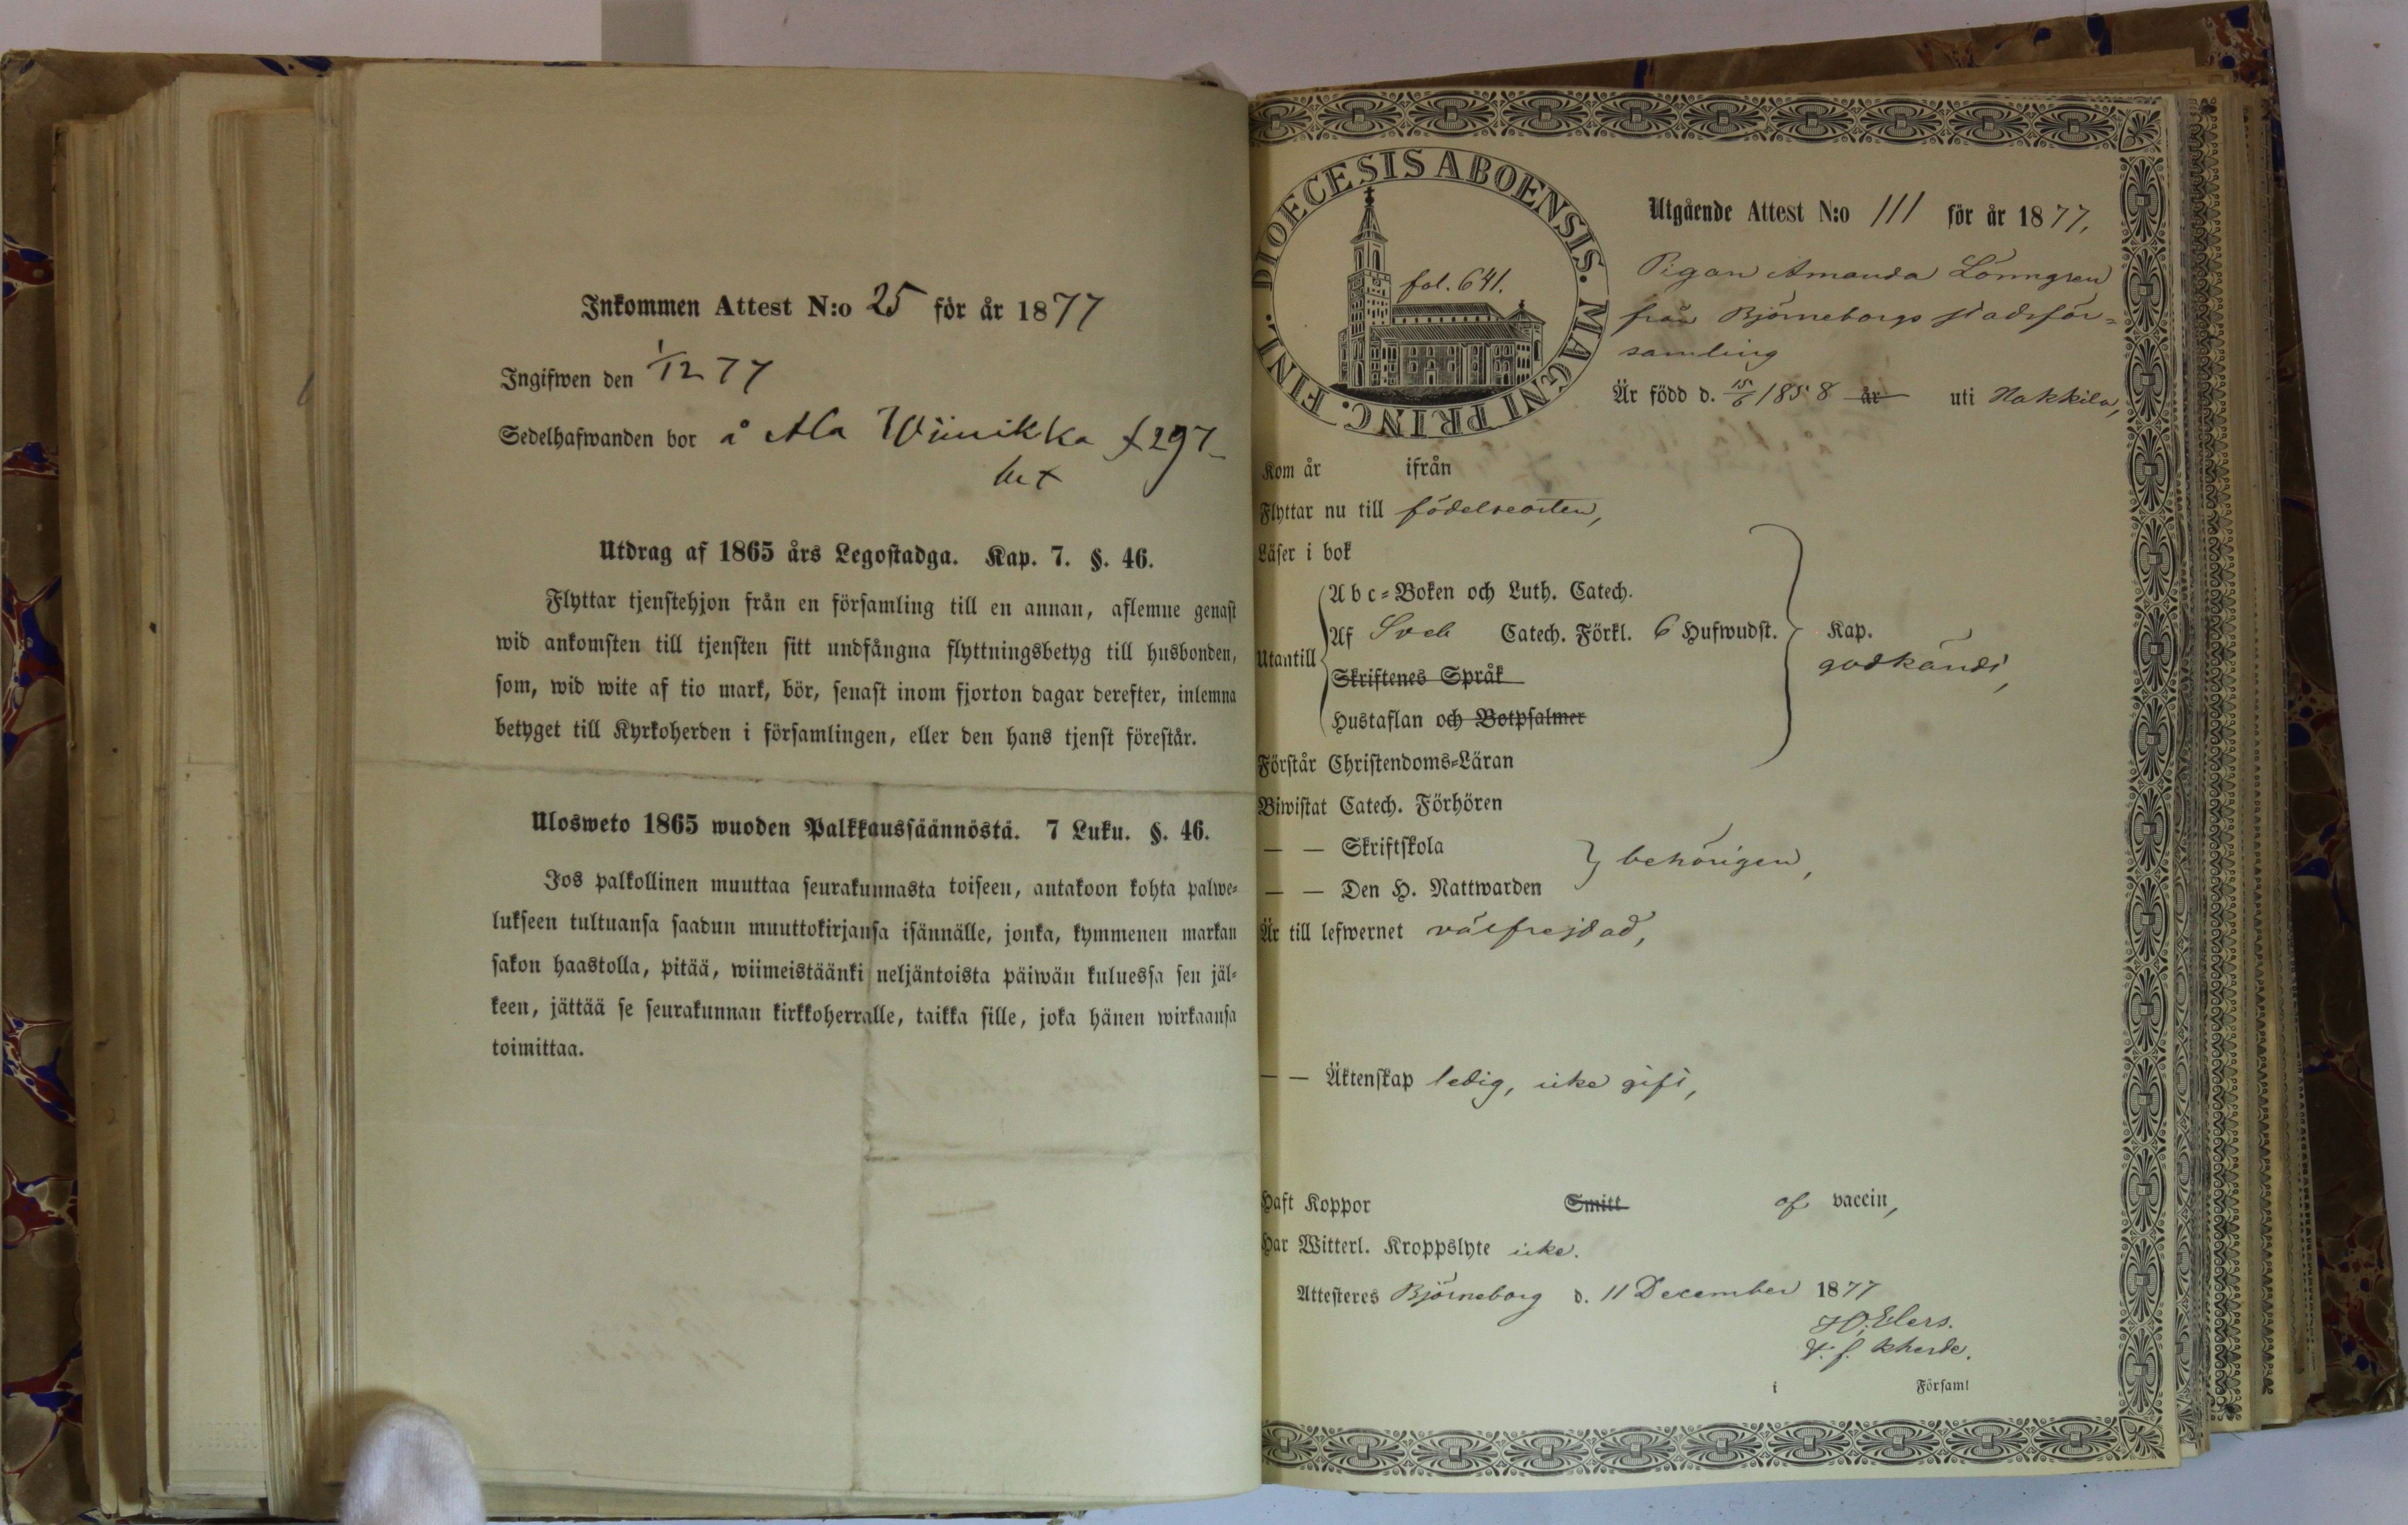 Inkommen Attest N:o 25 för år 1877
Ingifwen den 1/12 77
Sedelhafwanden bor å Ala Wiinikka f 297
bet
Utdrag af 1865 års Legostadga. Kap. 7. §. 46.
Flyttar tjenstehjon från en församling till en annan, aflemne genast
wid ankomsten till tjensten sitt undfångna flyttningsbetyg till husbonden,
som, wid wite af tio mark, bör, senast inom fjorton dagar derefter, inlemna
betyget till Kyrkoherden i församlingen, eller den hans tjenst förestår.
Ulosweto 1865 wuoden Palkkaussäännöstä. 7 Luku. §. 46.
Jos palkollinen muuttaa seurakunnasta toiseen, antakoon kohta palwe=
lukseen tultuansa saadun muuttokirjansa isännälle, jonka, kymmenen markan
sakon haastolla, pitää, wiimeistäänki neljäntoista päiwän kuluessa sen jäl=
keen, jättää se seurakunnan kirkkoherralle, taikka sille, joka hänen wirkaansa
toimittaa.
DIOECESIS ABOENSIS. MAGNI PRINC. FINL.
fol. 641.
Utgående Attest N:o 111 för år 1877,
Pigan Amanda Lönngren
från Björneborgs stadsför=
samling
Är född d. 15/6 1858 år uti Nakkila,
Kom år ifrån
Flyttar nu till födelseorten,
Läser i bok
Abc=Boken och Luth. Catech.
Utantill Af Sveb Catech. Förkl. 6 Hufwudst. Kap.
godkändt,
Skriftenes Språk
Hustaflan och Botpsalmer
Förstår Christendoms=Läran
Biwistat Catech. Förhören
— — Skriftskola
behörigen,
— — Den H. Nattwarden
Är till lefwernet välfrejdad,
— — Äktenskap ledig, icke gift,
Haft Koppor Smitt af vaccin,
Har Witterl. Kroppslyte icke.
Attesteres Björneborg d. 11 December 1877
Elers.
V. f. kherde.
i Församl